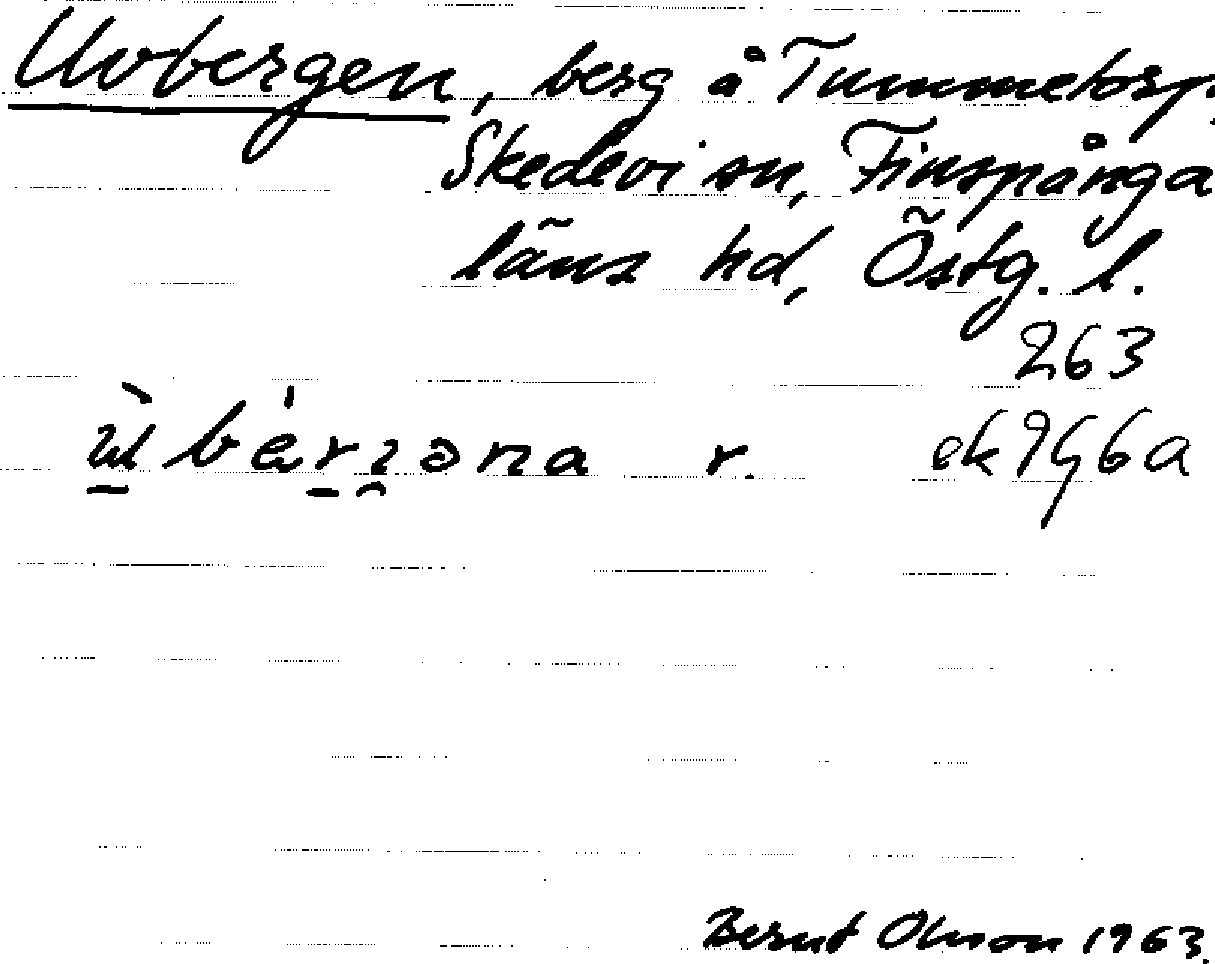 Uvbergen, berg å Tummetorp.
Skedevi sn, Finspånga
läns hd, Östg. l.
263
r. ek 9G6a
Bernt Olsson 1963.